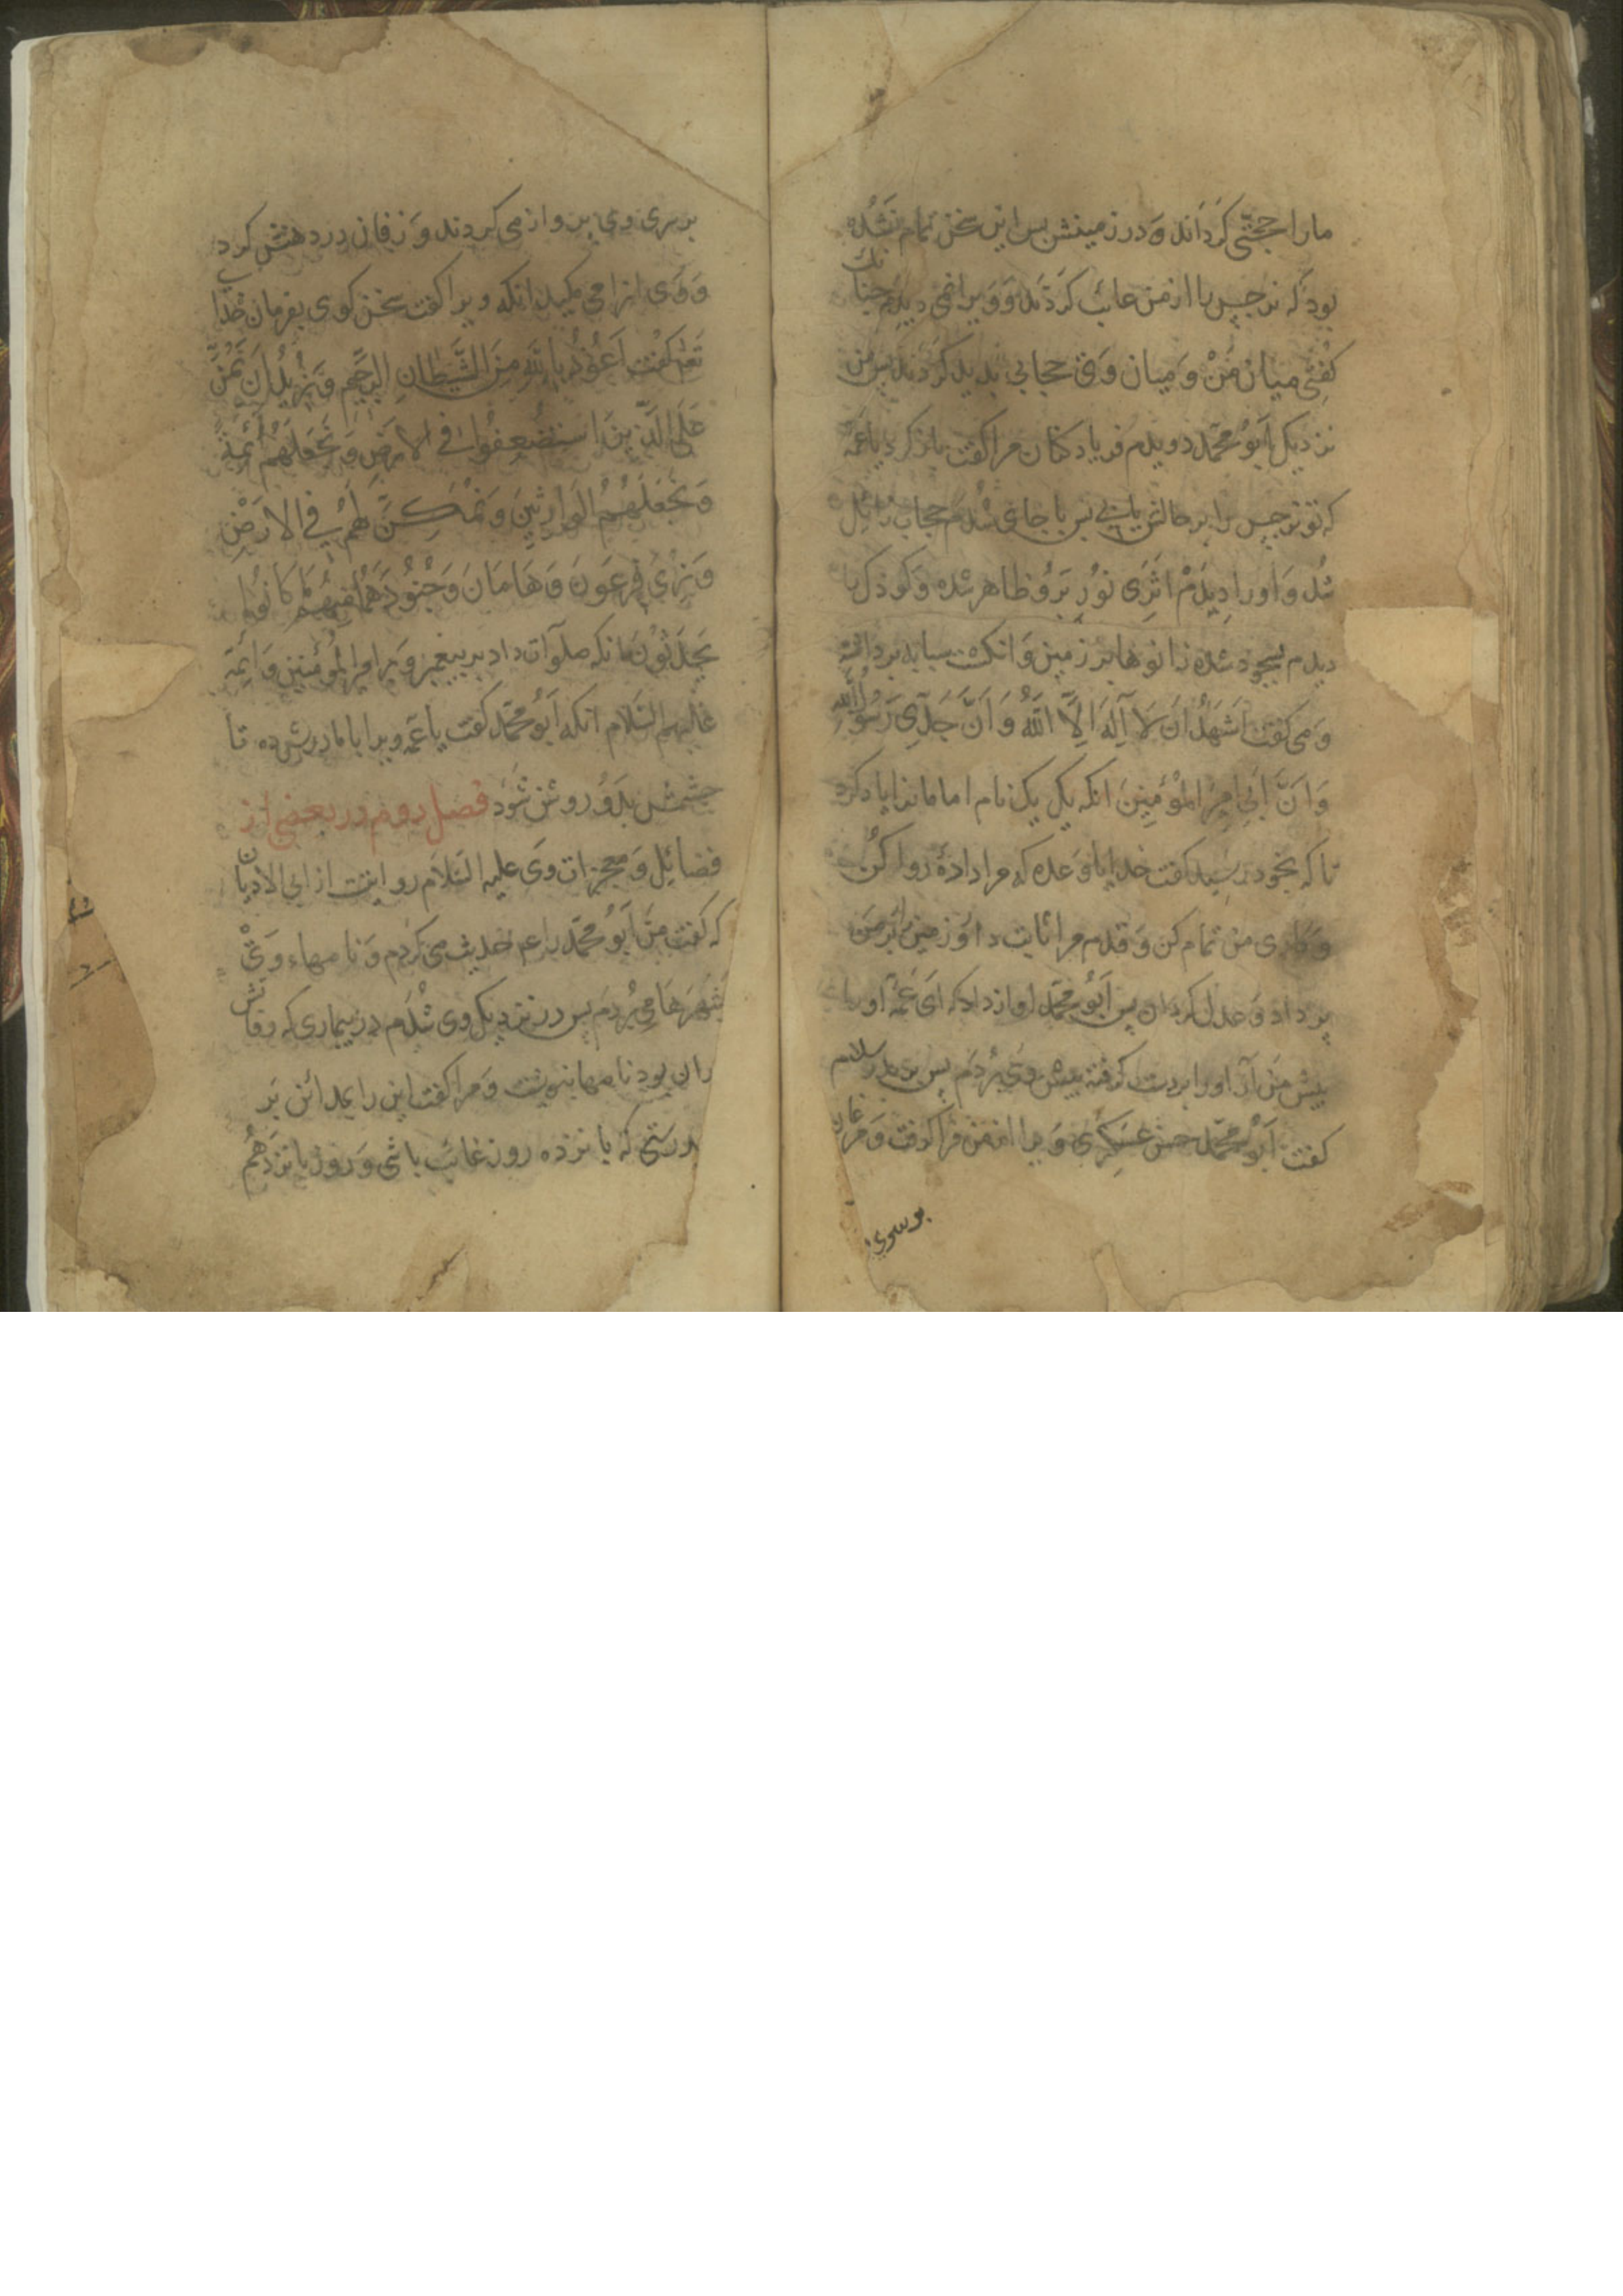 مارا حجتی کرداند و در زمینش پس این سخن تمام نشده
بود که نرجس را از من غائب کردند و ویرا نمی دیدم چنانک
گفتی میان من و میان وی حجابی پدید کردند پس من
نزدیک ابو محمد دویدم فریاد کنان مرا گفت باز کرد یا عمه
که تو نرجس را بر حالش یابی پس با جای شدم حجاب زائل
شد و او را دیدم اثری نور برو ظاهر شده و کودک را
دیدم بسجود شده زانوها بر زمین و انکشت سبابه برداشته
و می گفت اشهد ان لا اله الا الله و ان جدی رسول الله
و ان ابی امیر المؤمنین انکه یک یک نام امامانرا یاد کرد
تا که بخود رسید گفت خدایا وعده که مرا داده روا کن
و کاری من تمام کن و قدم مرا ثابت دار و زمین را بر من
پر داد و عدل کردان پس ابو محمد اواز داد که ای عمه او را
پیش من آر او را بردست کرفته پیش وی بردم پس بر پدر سلام
گفت ابو محمد حسن عسکری ویرا از من فرا کرفت و مرغان
بر سری
بر سری وی پرواز می کردند و زفان در دهنش کرد
و وی انرا می مکید انکه ویرا گفت سخن کوی بفرمان خدا
تعالی گفت اعوذ بالله من الشیطان الرجیم و نرید ان نمن
علی الذین استضعفوا فی الارض و نجعلهم ائمة
و نجعلهم الوارثین و نمکن لهم فی الارض
و نری فرعون و هامان و جنودهما منهم ما کانوا
یحذرون انکه صلوات داد بر پیغمبر و بر امیر المؤمنین و ائمة
علیهم السلام انکه ابو محمد گفت یا عمه ویرا با مادرش ده تا
چشمش بدو روشن شود فصل دوم در بعضی از
فضائل و معجزات وی علیه السلام روایت از ابی الادیان
که گفت من ابو محمد را علم حدیث می کردم و نامهاء وی
بشهرها می بردم پس در نزدیک وی شدم در بیماری که وفاتش
دران بود نامها بنوشت و مرا گفت این را بمدائن بر
بدرستی که پانزده روز غائب باشی و روز پانزدهم